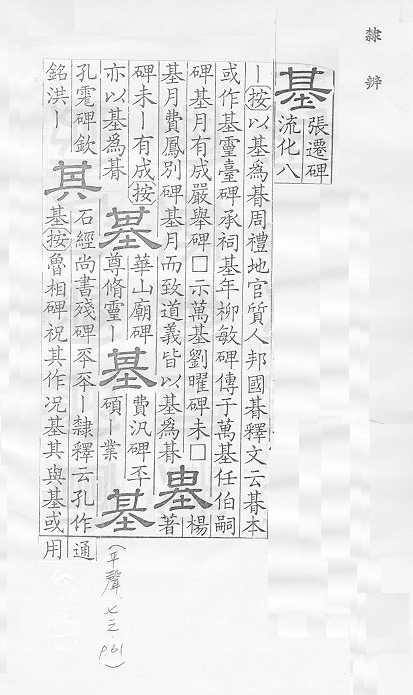 隸辨
基 張遷碑
流化八
丨按以基爲朞周禮地官質人邦國朞釋文云朞本
或作基靈臺碑承祠基年柳敏碑傳于萬基任伯嗣
碑基月有成嚴舉碑□示萬基劉曜碑未□
基月費鳳別碑基月而致道義皆以基爲朞
基 楊
著
碑未丨有成按
亦以基爲朞
基 華山廟碑
尊脩靈丨
基 費汎碑丕
碩丨業
基
孔碑欽
銘洪丨
其 石經尚書殘碑丕丕丨隸釋云孔作通
基按魯相碑祝其作况基其與基或用
(平聲 七之 P61)